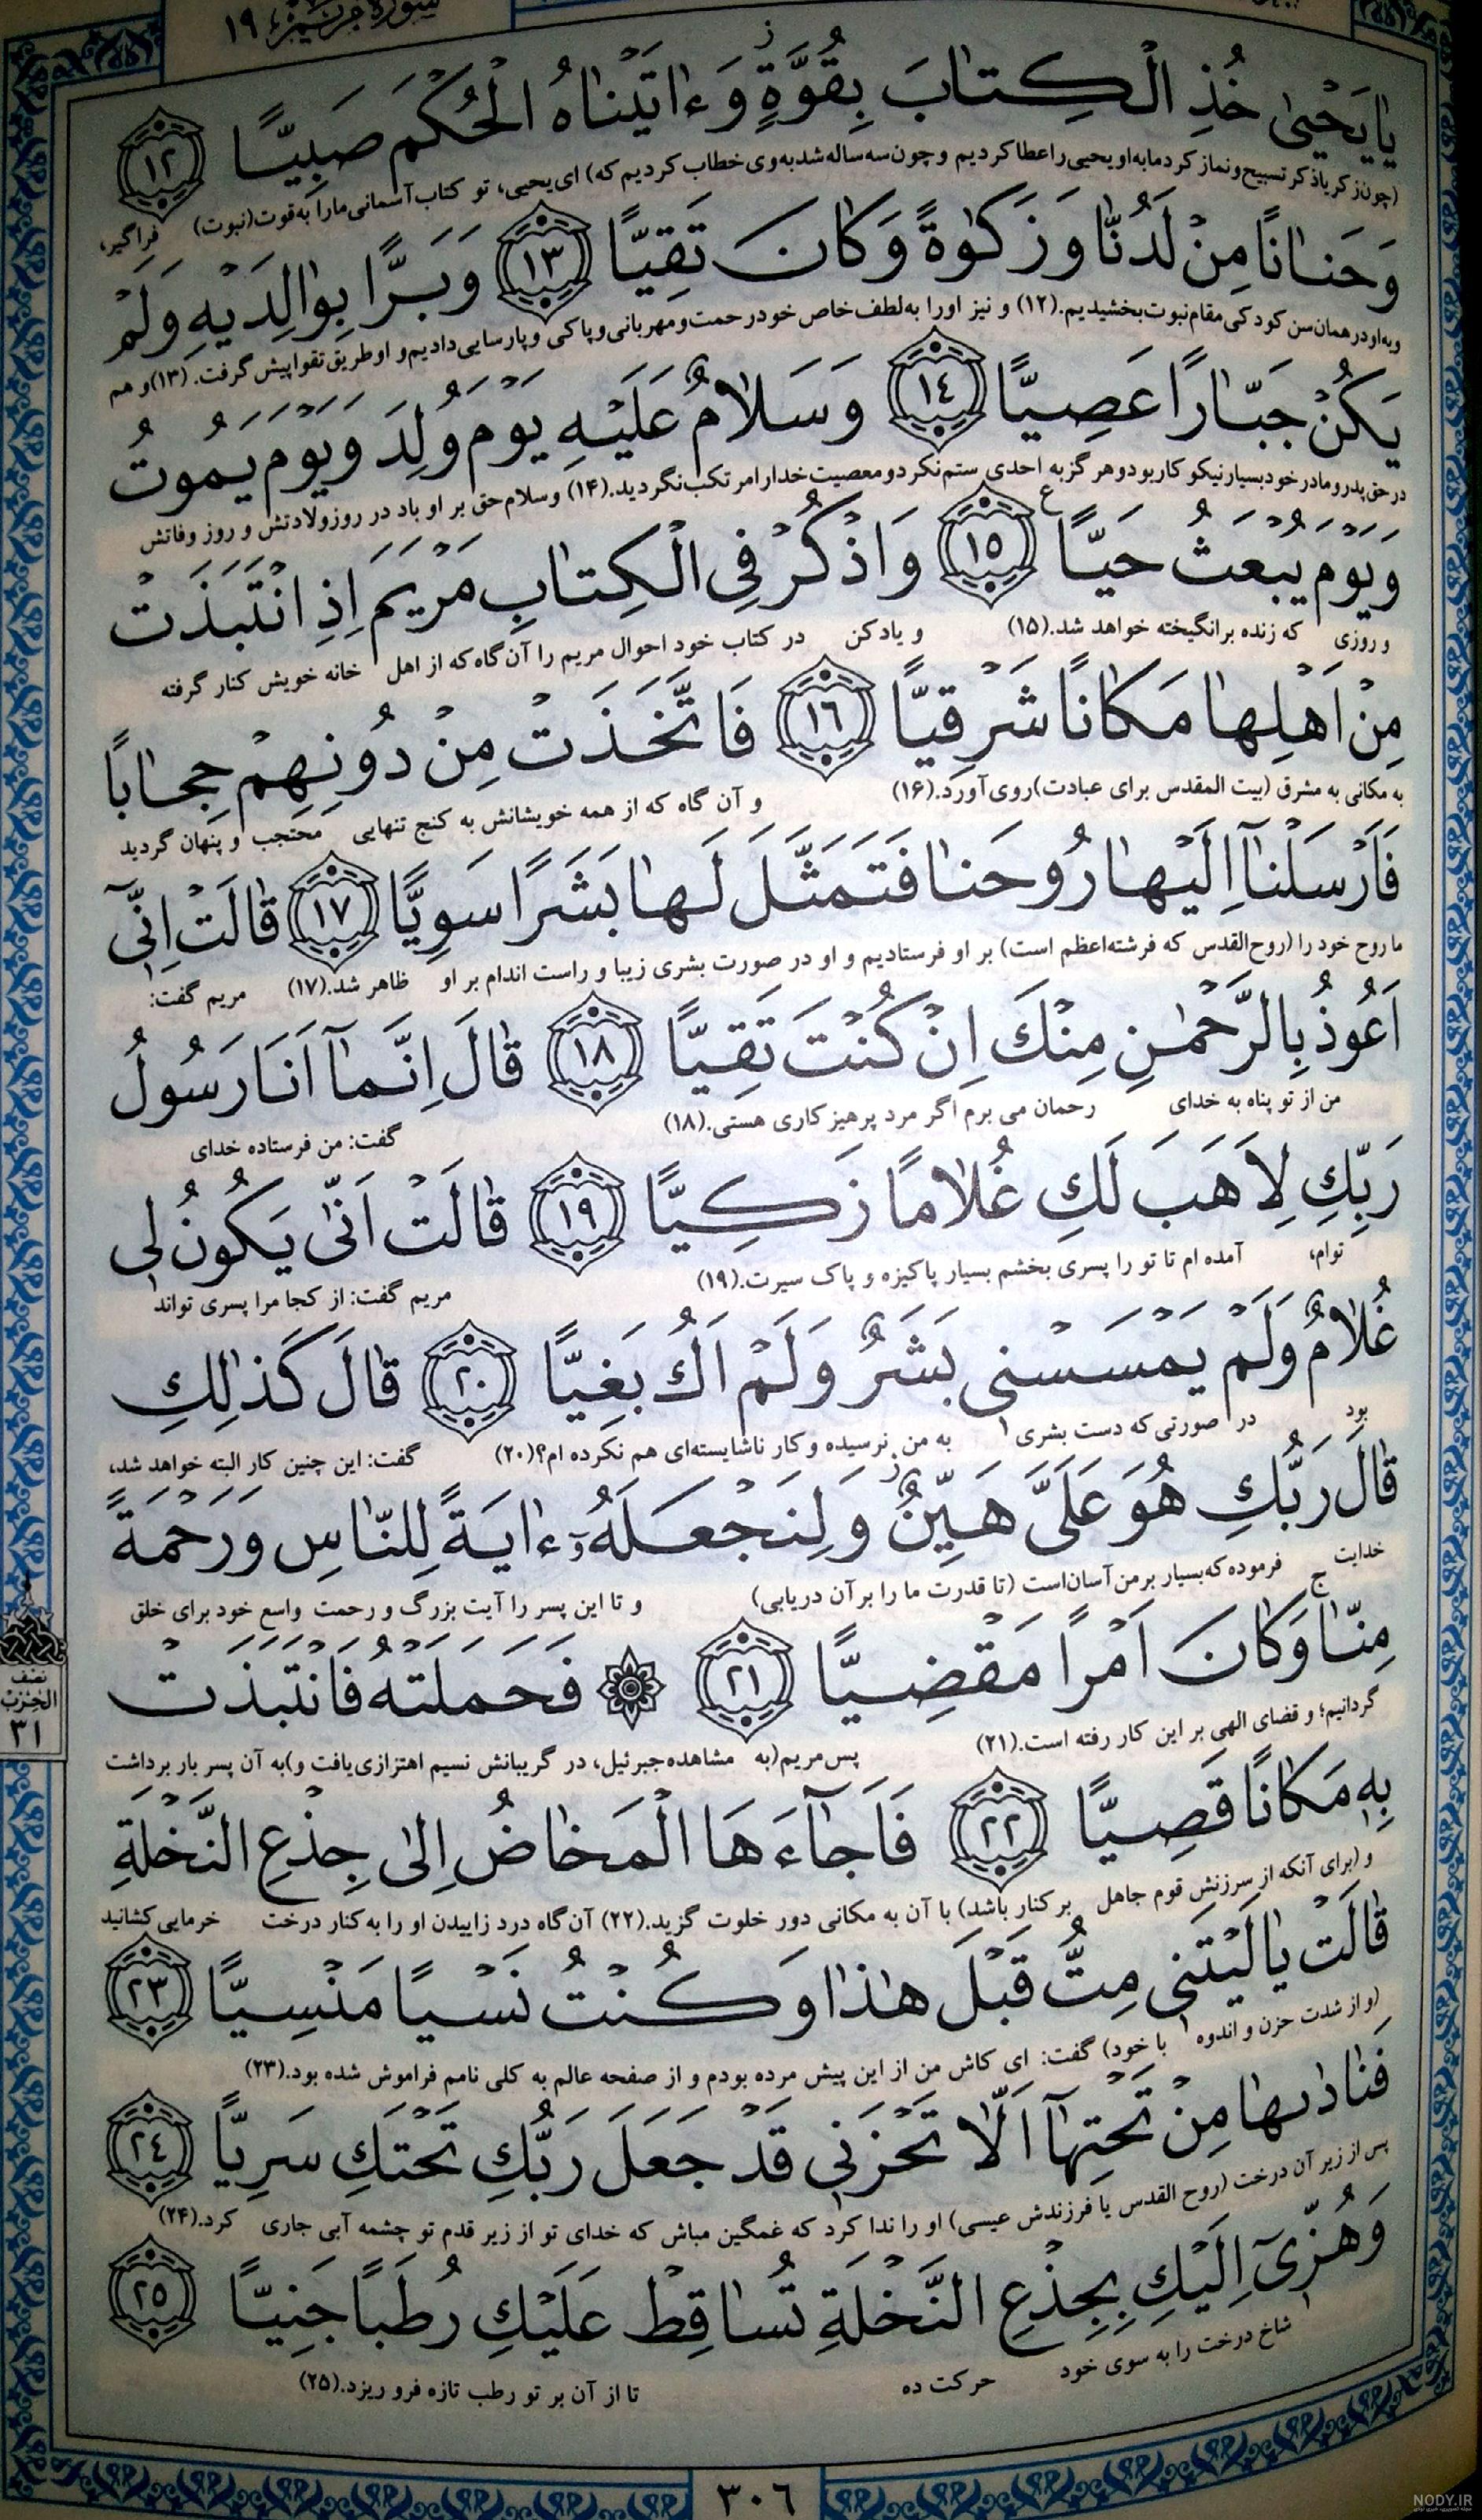 سورة مریم ١٩
یا یَحْییٰ خُذِ الْکِتابَ بِقُوَّةٍ وَ ءاتَیْناهُ الْحُکْمَ صَبِیًّا ١٢
(چون زکریا ذکر تسبیح و نماز کرد ما به او یحیی را عطا کردیم و چون سه ساله شد به وی خطاب کردیم که) ای یحیی، تو کتاب آسمانی ما را به قوت (نبوت) فراگیر،
وَ حَناناً مِنْ لَدُنّا وَ زَکوٰةً وَ کانَ تَقِیًّا ١٣ وَ بَرًّا بِوالِدَیْهِ وَ لَمْ
و به او در همان سن کودکی مقام نبوت بخشیدیم.(۱۲) و نیز او را به لطف خاص خود رحمت و مهربانی و پاکی و پارسایی دادیم و او طریق تقوا پیش گرفت. (۱۳) و هم
یَکُنْ جَبّاراً عَصِیًّا ١٤ وَ سَلامٌ عَلَیْهِ یَوْمَ وُلِدَ وَ یَوْمَ یَمُوتُ
در حق پدر و مادر خود بسیار نیکو کار بود و هرگز به احدی ستم نکرد و معصیت خدا را مرتکب نگردید.(۱۴) و سلام حق بر او باد در روز ولادتش و روز وفاتش
وَ یَوْمَ یُبْعَثُ حَیًّا ١٥ وَ اذْکُرْ فِی الْکِتابِ مَرْیَمَ اِذِ انْتَبَذَتْ
و روزی که زنده برانگیخته خواهد شد.(۱۵) و یاد کن در کتاب خود احوال مریم را آن گاه که از اهل خانه خویش کنار گرفته
مِنْ اَهْلِها مَکاناً شَرْقِیًّا ١٦ فَاتَّخَذَتْ مِنْ دُونِهِمْ حِجاباً
به مکانی به مشرق (بیت المقدس برای عبادت) روی آورد.(۱۶) و آن گاه که از همه خویشانش به کنج تنهایی محتجب و پنهان گردید
فَاَرْسَلْنآ اِلَیْها رُوحَنا فَتَمَثَّلَ لَها بَشَراً سَوِیًّا ١٧ قالَتْ اِنّیٓ
ما روح خود را (روح القدس که فرشته اعظم است) بر او فرستادیم و او در صورت بشری زیبا و راست اندام بر او ظاهر شد.(۱۷) مریم گفت:
اَعُوذُ بِالرَّحْمٰنِ مِنْکَ اِنْ کُنْتَ تَقِیًّا ١٨ قالَ اِنَّمآ اَنَا رَسُولُ
من از تو پناه به خدای رحمان می برم اگر مرد پرهیزکاری هستی.(۱۸) گفت: من فرستاده خدای
رَبِّکِ لِاَهَبَ لَکِ غُلاماً زَکِیًّا ١٩ قالَتْ اَنّیٰ یَکُونُ لی
توام، آمده ام تا تو را پسری بخشم بسیار پاکیزه و پاک سیرت.(۱۹) مریم گفت: از کجا مرا پسری تواند
غُلامٌ وَ لَمْ یَمْسَسْنی بَشَرٌ وَ لَمْ اَکُ بَغِیًّا ٢٠ قالَ کَذٰلِکِ
بود در صورتی که دست بشری به من نرسیده و کار ناشایسته‌ای هم نکرده ام؟(۲۰) گفت: این چنین کار البته خواهد شد،
قالَ رَبُّکِ هُوَ عَلَیَّ هَیِّنٌ وَ لِنَجْعَلَهُ ءایَةً لِلنّاسِ وَ رَحْمَةً
خدایت فرموده که بسیار بر من آسان است (تا قدرت ما را بر آن دریابی) و تا این پسر را آیت بزرگ و رحمت واسع خود برای خلق
مِنّا وَ کانَ اَمْراً مَقْضِیًّا ٢١ فَحَمَلَتْهُ فَانْتَبَذَتْ
گردانیم؛ و قضای الهی بر این کار رفته است.(۲۱) پس مریم (به مشاهده جبرئیل، در گریبانش نسیم اهتزازی یافت و) به آن پسر بار برداشت
بِهِ مَکاناً قَصِیًّا ٢٢ فَاَجآءَهَا الْمَخاضُ اِلیٰ جِذْعِ النَّخْلَةِ
و (برای آنکه از سرزنش قوم جاهل بر کنار باشد) با آن به مکانی دور خلوت گزید.(۲۲) آن گاه درد زاییدن او را به کنار درخت خرمایی کشانید
قالَتْ یا لَیْتَنی مِتُّ قَبْلَ هٰذا وَ کُنْتُ نَسْیاً مَنْسِیًّا ٢٣
(و از شدت حزن و اندوه با خود) گفت: ای کاش من از این پیش مرده بودم و از صفحه عالم به کلی نامم فراموش شده بود.(۲۳)
فَنادٰیها مِنْ تَحْتِهآ اَلّا تَحْزَنی قَدْ جَعَلَ رَبُّکِ تَحْتَکِ سَرِیًّا ٢٤
پس از زیر آن درخت (روح القدس یا فرزندش عیسی) او را ندا کرد که غمگین مباش که خدای تو از زیر قدم تو چشمه آبی جاری کرد.(۲۴)
وَ هُزّیٓ اِلَیْکِ بِجِذْعِ النَّخْلَةِ تُساقِطْ عَلَیْکِ رُطَباً جَنِیًّا ٢٥
شاخ درخت را به سوی خود حرکت ده تا از آن بر تو رطب تازه فرو ریزد.(۲۵)
نصف
الحزب
٣١
٣٠٦
NODY.IR